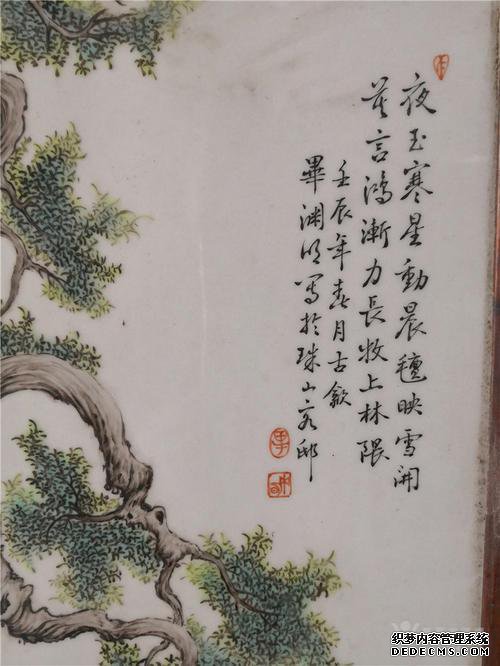 夜玉寒星動晨氊映雪開
莫言鴻漸力長牧上林隈
壬辰年春月古歙
畢渊明写於珠山客邸
织梦内容管理系统
DEDECMS.COM